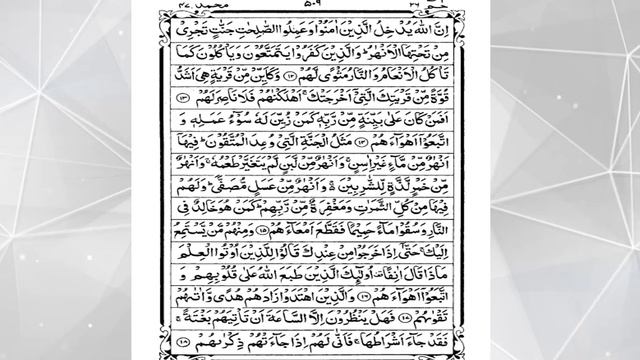 محمد ٤٧ ٥٠٩ ٢٦
اِنَّ اللّٰهَ يُدْخِلُ الَّذِيْنَ اٰمَنُوْا وَعَمِلُوا الصّٰلِحٰتِ جَنّٰتٍ تَجْرِيْ
مِنْ تَحْتِهَا الْاَنْهٰرُ ؕ وَالَّذِيْنَ كَفَرُوْا يَتَمَتَّعُوْنَ وَيَاْكُلُوْنَ كَمَا
تَاْكُلُ الْاَنْعَامُ وَالنَّارُ مَثْوًى لَّهُمْ ﴿١٢﴾ وَكَاَيِّنْ مِّنْ قَرْيَةٍ هِيَ اَشَدُّ
قُوَّةً مِّنْ قَرْيَتِكَ الَّتِيْٓ اَخْرَجَتْكَ ۚ اَهْلَكْنٰهُمْ فَلَا نَاصِرَ لَهُمْ ﴿١٣﴾
اَفَمَنْ كَانَ عَلٰى بَيِّنَةٍ مِّنْ رَّبِّهٖ كَمَنْ زُيِّنَ لَهٗ سُوْٓءُ عَمَلِهٖ وَ
اتَّبَعُوْٓا اَهْوَآءَهُمْ ﴿١٤﴾ مَثَلُ الْجَنَّةِ الَّتِيْ وُعِدَ الْمُتَّقُوْنَ ؕ فِيْهَآ
اَنْهٰرٌ مِّنْ مَّآءٍ غَيْرِ اٰسِنٍ ۚ وَاَنْهٰرٌ مِّنْ لَّبَنٍ لَّمْ يَتَغَيَّرْ طَعْمُهٗ ۚ وَاَنْهٰرٌ
مِّنْ خَمْرٍ لَّذَّةٍ لِّلشّٰرِبِيْنَ ۚ وَاَنْهٰرٌ مِّنْ عَسَلٍ مُّصَفًّى ؕ وَلَهُمْ
فِيْهَا مِنْ كُلِّ الثَّمَرٰتِ وَمَغْفِرَةٌ مِّنْ رَّبِّهِمْ ؕ كَمَنْ هُوَ خَالِدٌ فِي
النَّارِ وَسُقُوْا مَآءً حَمِيْمًا فَقَطَّعَ اَمْعَآءَهُمْ ﴿١٥﴾ وَمِنْهُمْ مَّنْ يَّسْتَمِعُ
اِلَيْكَ ۚ حَتّٰٓى اِذَا خَرَجُوْا مِنْ عِنْدِكَ قَالُوْا لِلَّذِيْنَ اُوْتُوا الْعِلْمَ
مَاذَا قَالَ اٰنِفًا ۟ اُولٰٓئِكَ الَّذِيْنَ طَبَعَ اللّٰهُ عَلٰى قُلُوْبِهِمْ وَ
اتَّبَعُوْٓا اَهْوَآءَهُمْ ﴿١٦﴾ وَالَّذِيْنَ اهْتَدَوْا زَادَهُمْ هُدًى وَّاٰتٰىهُمْ
تَقْوٰىهُمْ ﴿١٧﴾ فَهَلْ يَنْظُرُوْنَ اِلَّا السَّاعَةَ اَنْ تَاْتِيَهُمْ بَغْتَةً ۚ
فَقَدْ جَآءَ اَشْرَاطُهَا ۚ فَاَنّٰى لَهُمْ اِذَا جَآءَتْهُمْ ذِكْرٰىهُمْ ﴿١٨﴾